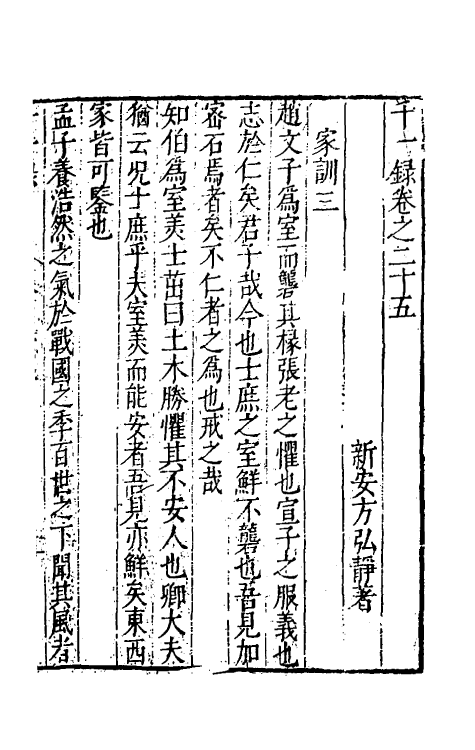 千一録卷之二十五
新安方弘静著
家訓三
趙文子爲室而礱其椽張老之懼也宣子之服義也
志於仁矣君子哉今也士庶之室鮮不礱也吾見加
密石焉者矣不仁者之爲也戒之哉
知伯爲室美士茁曰土木勝懼其不安人也卿大夫
猶云况士庶乎夫室美而能安者吾見亦鮮矣東西
家皆可鑒也
孟子養浩然之氣於戰國之季百世之下聞其風者